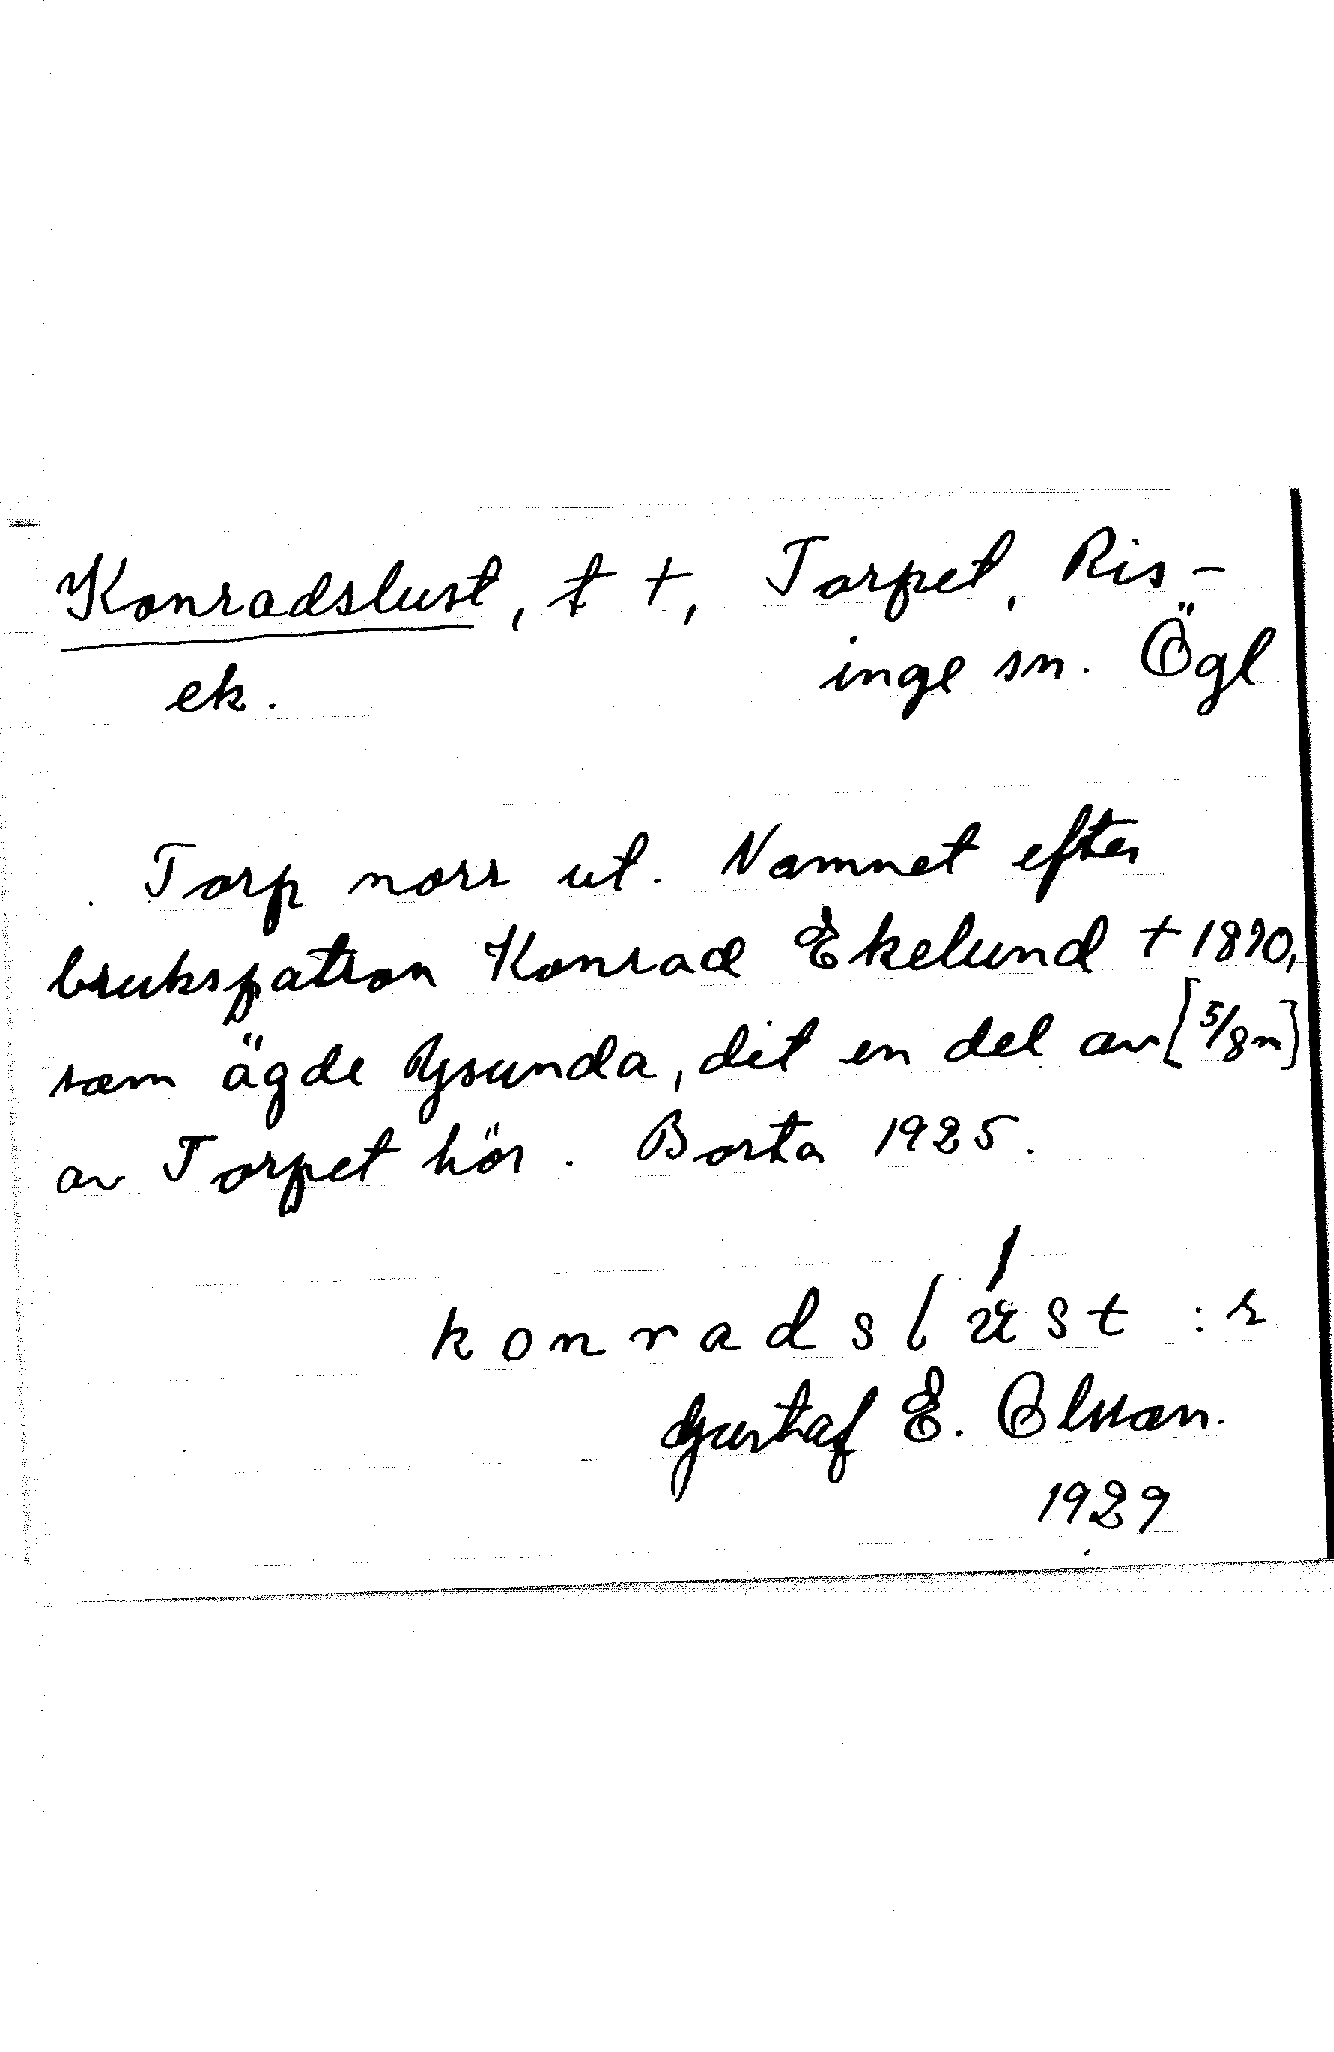 Konradslust, t †, Torpet, Ris-
ek. inge sn. Ögl
Torp norr ut. Namnet efter
brukspatron Konrad Ekelund † 1890,
som ägde Ysunda, dit en del av [5/8 m]
av Torpet hör. Borta 1925.
konradslust :r
Gustaf E. Olsson.
1929